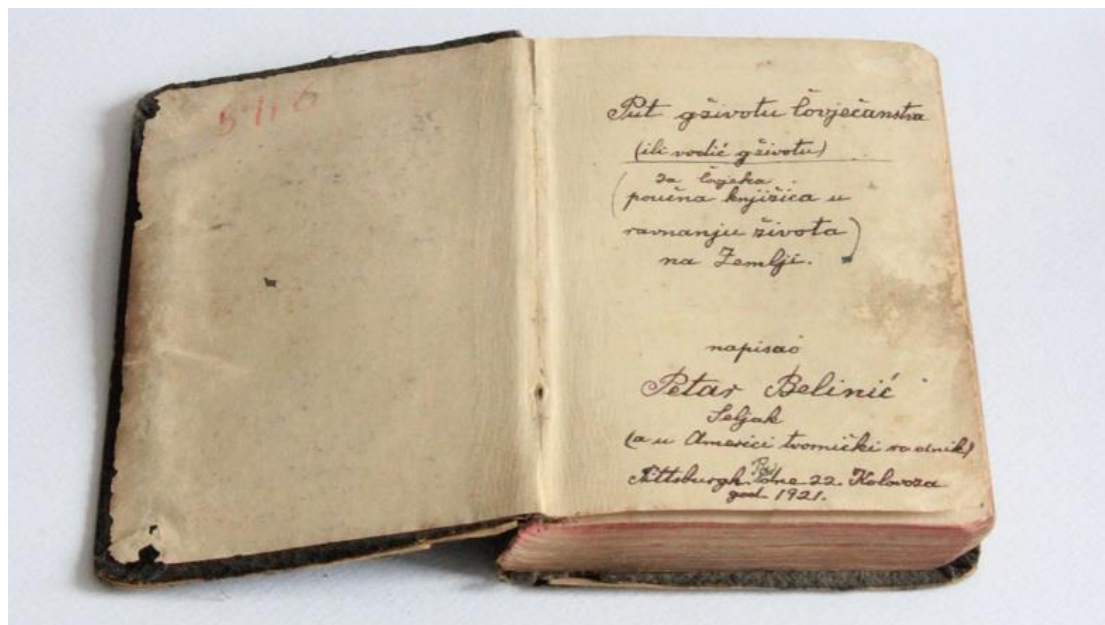 5116
Put gživotu čovječanstva
(ili vodić gživotu)
za čovjeka
(poučna knjižica u
ravnanju života)
na Zemlji.
napisao
Petar Belinić
Seljak
(a u Americi tvornički radnik)
Pittsburgh. Pa. dne 22. Kolovoza
god. 1921.